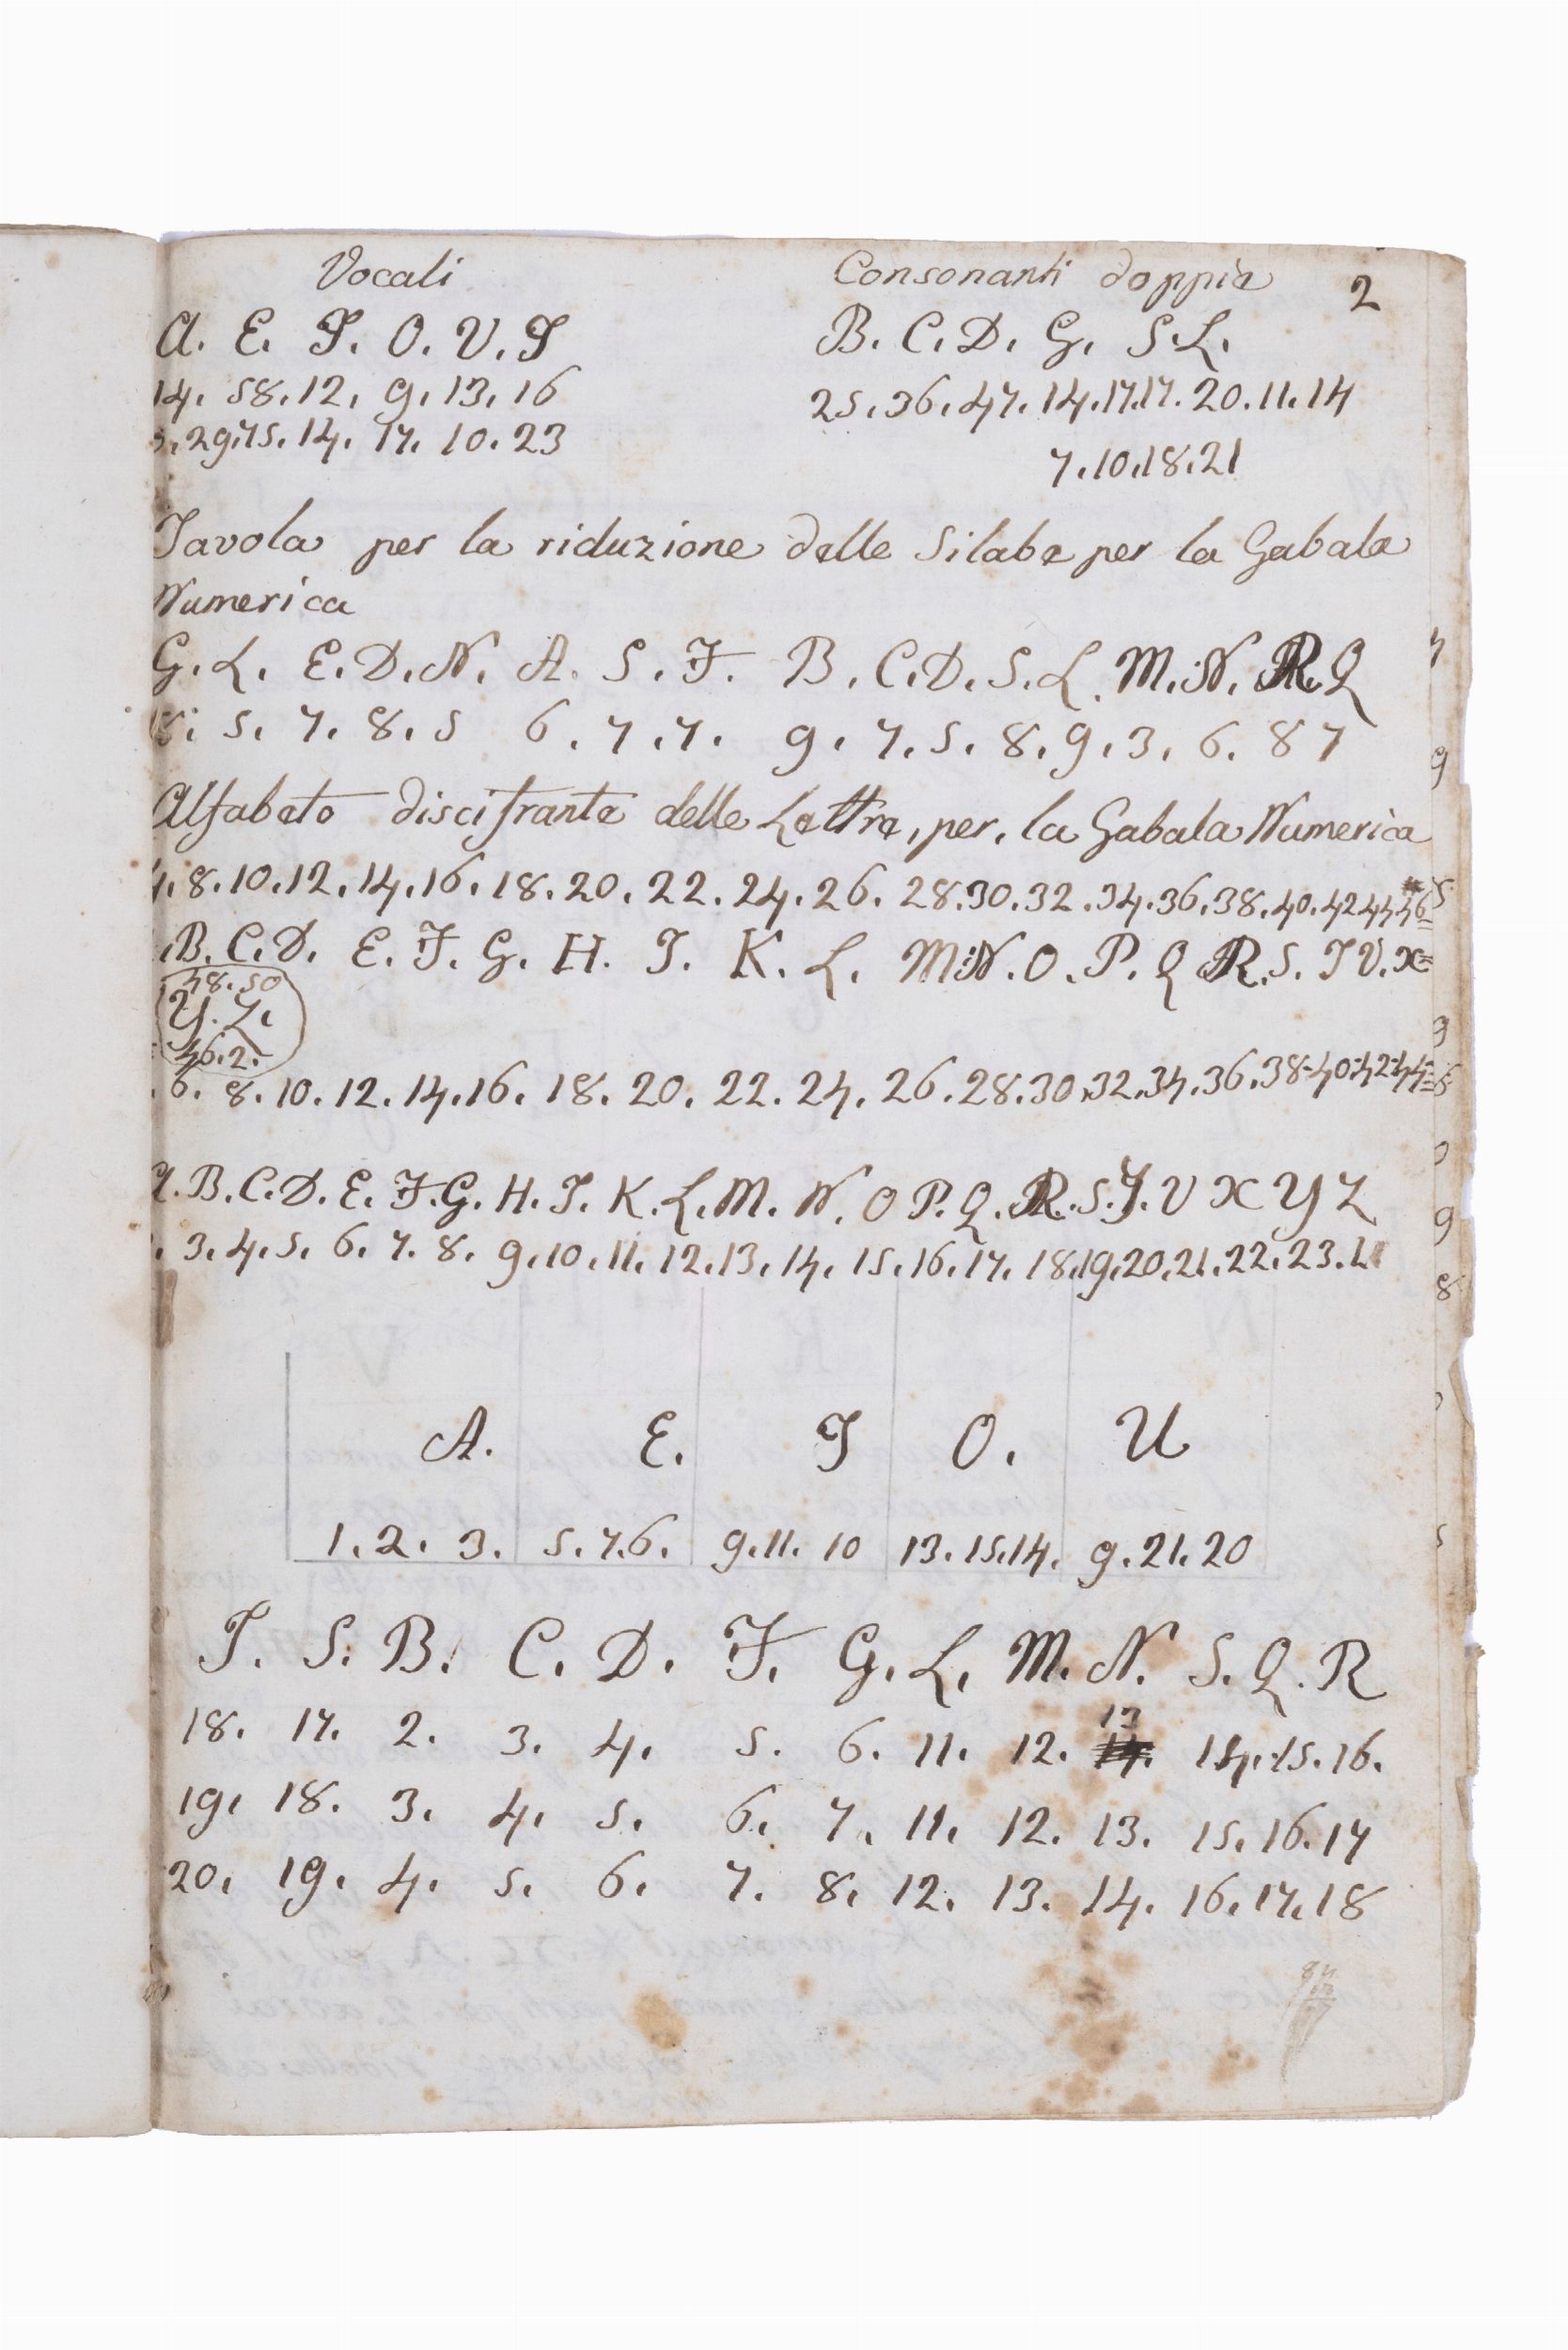 Vocali
Consonanti doppie
2
A. E. I. O. V. I
B. C. D. G. S. L.
14. 58. 12. 9. 13. 16
25. 36. 47. 14. 17. 17. 20. 11. 14
29. 75. 14. 17. 10. 23
7. 10. 18. 21
Tavola per la riduzione delle Silabe per la Gabala
Numerica
G. L. E. D. N. A. S. F. B. C. D. S. L. M. N. R. Q
5. 7. 8. 5 6. 7. 7. 9. 7. 5. 8. 9. 3. 6. 8 7
Alfabeto discifrante delle Lettre, per, la Gabala Numerica
8. 10. 12. 14. 16. 18. 20. 22. 24. 26. 28. 30. 32. 34. 36. 38. 40. 42 44 46
B. C. D. E. F. G. H. I. K. L. M. N. O. P. Q R. S. T V. X=
48. 50
Y. Z.
46. 2.
6. 8. 10. 12. 14. 16. 18. 20. 22. 24. 26. 28. 30. 32. 34. 36. 38. 40. 42. 44=
A. B. C. D. E. F. G. H. I. K. L. M. N. O P. Q. R. S. T. V X Y Z
3. 4. 5. 6. 7. 8. 9. 10. 11. 12. 13. 14. 15. 16. 17. 18. 19. 20. 21. 22. 23. 1
A. E. I O. U
1. 2. 3. 5. 7. 6. 9. 11. 10 13. 15. 14. 9. 21. 20
T. S. B. C. D. F. G. L. M. N. S. Q. R
13
18. 17. 2. 3. 4. 5. 6. 11. 12. 14. 15. 16.
19. 18. 3. 4. 5. 6. 7. 11. 12. 13. 15. 16. 17
20. 19. 4. 5. 6. 7. 8. 12. 13. 14. 16. 17. 18